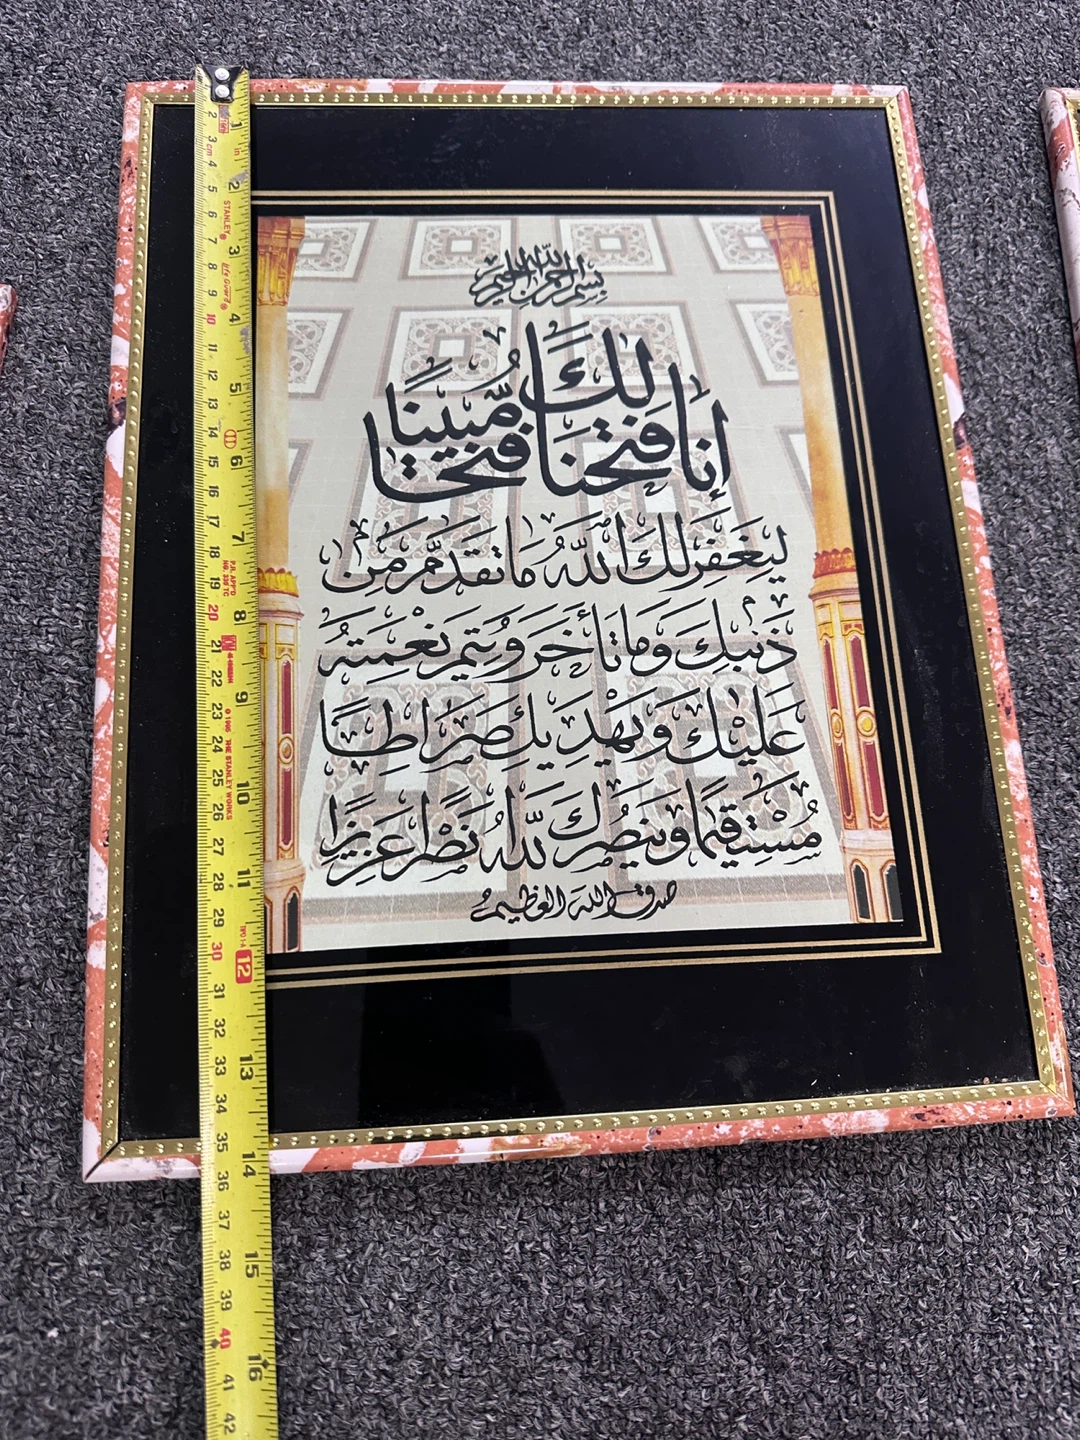 بسم الله الرحمن الرحيم
إنا فتحنا لك فتحا مبينا
ليغفر لك الله ما تقدم من
ذنبك وما تأخر ويتم نعمته
عليك ويهديك صراطا
مستقيما وينصرك الله نصرا عزيزا
صدق الله العظيم
1 in 2 3 4 5 6 7 8 9 10 11 12 13 14 15 16
2 3 cm 4 5 6 7 8 9 10 11 12 13 14 15 16 17 18 19 20 21 22 23 24 25 26 27 28 29 30 31 32 33 34 35 36 37 38 39 40 41 42
STANLEY
THE STANLEY WORKS